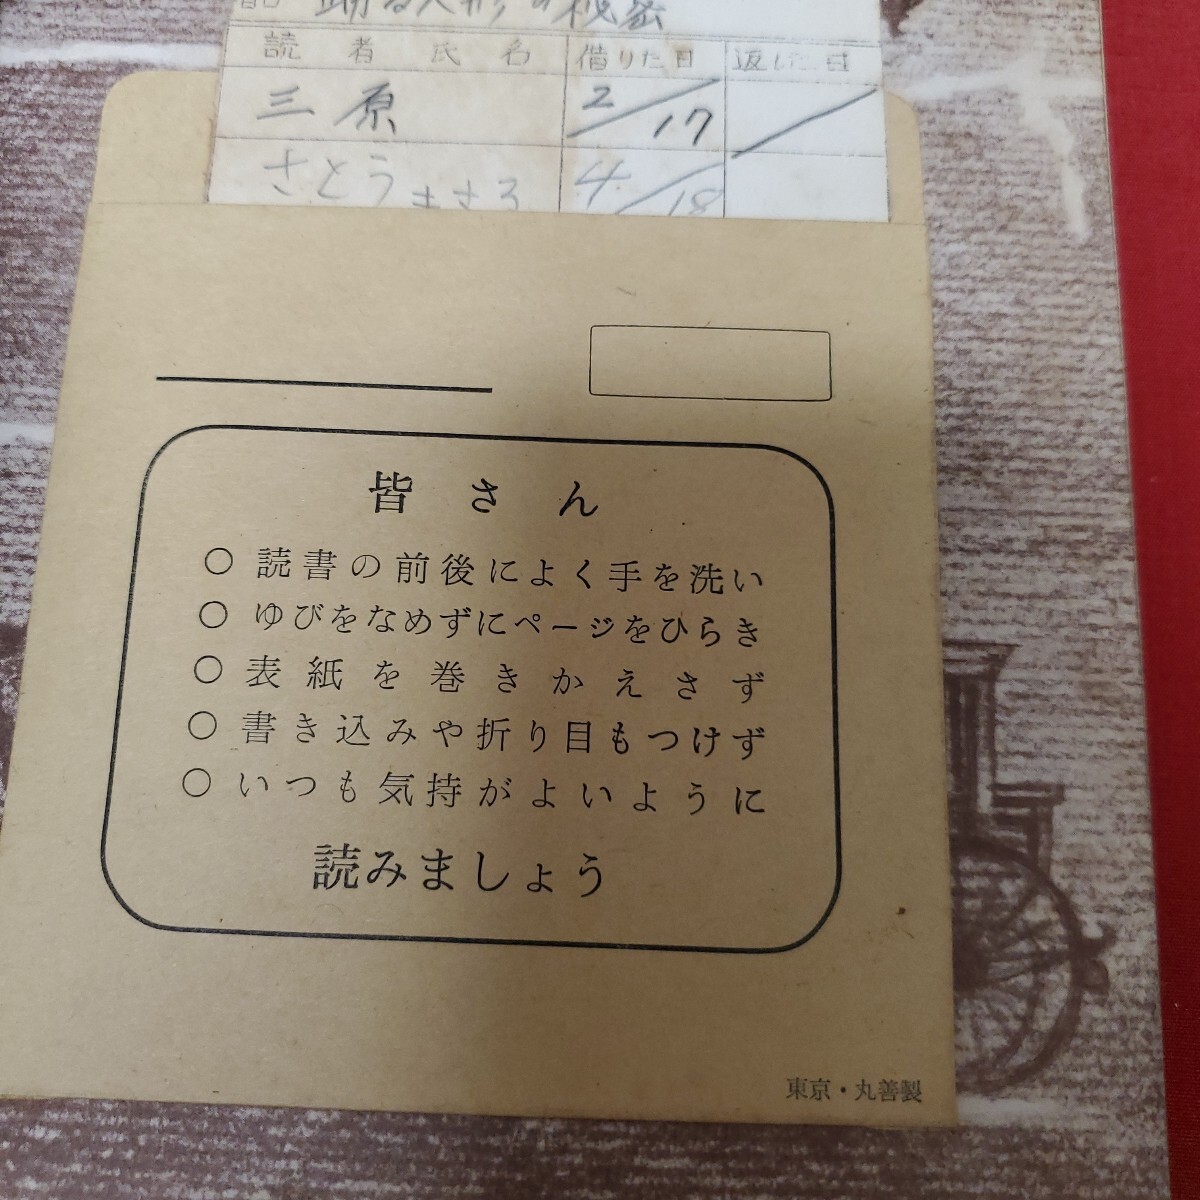 踊る人形の秘密
読者氏名 借りた日 返した日
三原 2/17 /
さとうまさる 4/18
皆さん
○ 読書の前後によく手を洗い
○ ゆびをなめずにページをひらき
○ 表紙を巻きかえさず
○ 書き込みや折り目もつけず
○ いつも気持がよいように
読みましょう
東京・丸善製